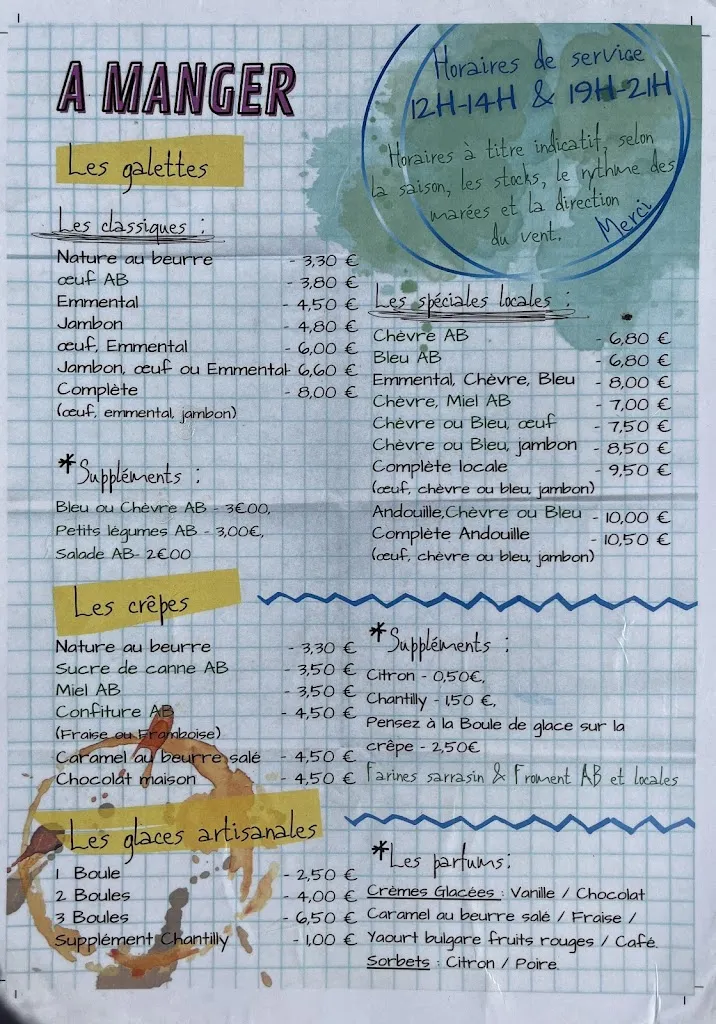 A MANGER
Horaires de service
12H-14H & 19H-21H
Horaires à titre indicatif, selon
la saison, les stocks, le rythme des
marées et la direction
du vent.
Merci
Les galettes
Les classiques :
Nature au beurre - 3,30 €
œuf AB - 3,80 €
Emmental - 4,50 €
Jambon - 4,80 €
œuf, Emmental - 6,00 €
Jambon, œuf ou Emmental - 6,60 €
Complète - 8,00 €
(œuf, emmental, jambon)
*Suppléments :
Bleu ou Chèvre AB - 3€00,
Petits légumes AB - 3,00€,
Salade AB- 2€00
Les spéciales locales :
Chèvre AB - 6,80 €
Bleu AB - 6,80 €
Emmental, Chèvre, Bleu - 8,00 €
Chèvre, Miel AB - 7,00 €
Chèvre ou Bleu, œuf - 7,50 €
Chèvre ou Bleu, jambon - 8,50 €
Complète locale - 9,50 €
(œuf, chèvre ou bleu, jambon)
Andouille,Chèvre ou Bleu - 10,00 €
Complète Andouille - 10,50 €
(œuf, chèvre ou bleu, jambon)
Les crêpes
Nature au beurre - 3,30 €
Sucre de canne AB - 3,50 €
Miel AB - 3,50 €
Confiture AB - 4,50 €
(Fraise ou Framboise)
Caramel au beurre salé - 4,50 €
Chocolat maison - 4,50 €
*Suppléments :
Citron - 0,50€,
Chantilly - 1,50 €,
Pensez à la Boule de glace sur la
crêpe - 2,50€
Farines sarrasin & Froment AB et locales
Les glaces artisanales
1 Boule - 2,50 €
2 Boules - 4,00 €
3 Boules - 6,50 €
Supplément Chantilly - 1,00 €
*Les parfums:
Crèmes Glacées : Vanille / Chocolat
Caramel au beurre salé / Fraise /
Yaourt bulgare fruits rouges / Café.
Sorbets : Citron / Poire.